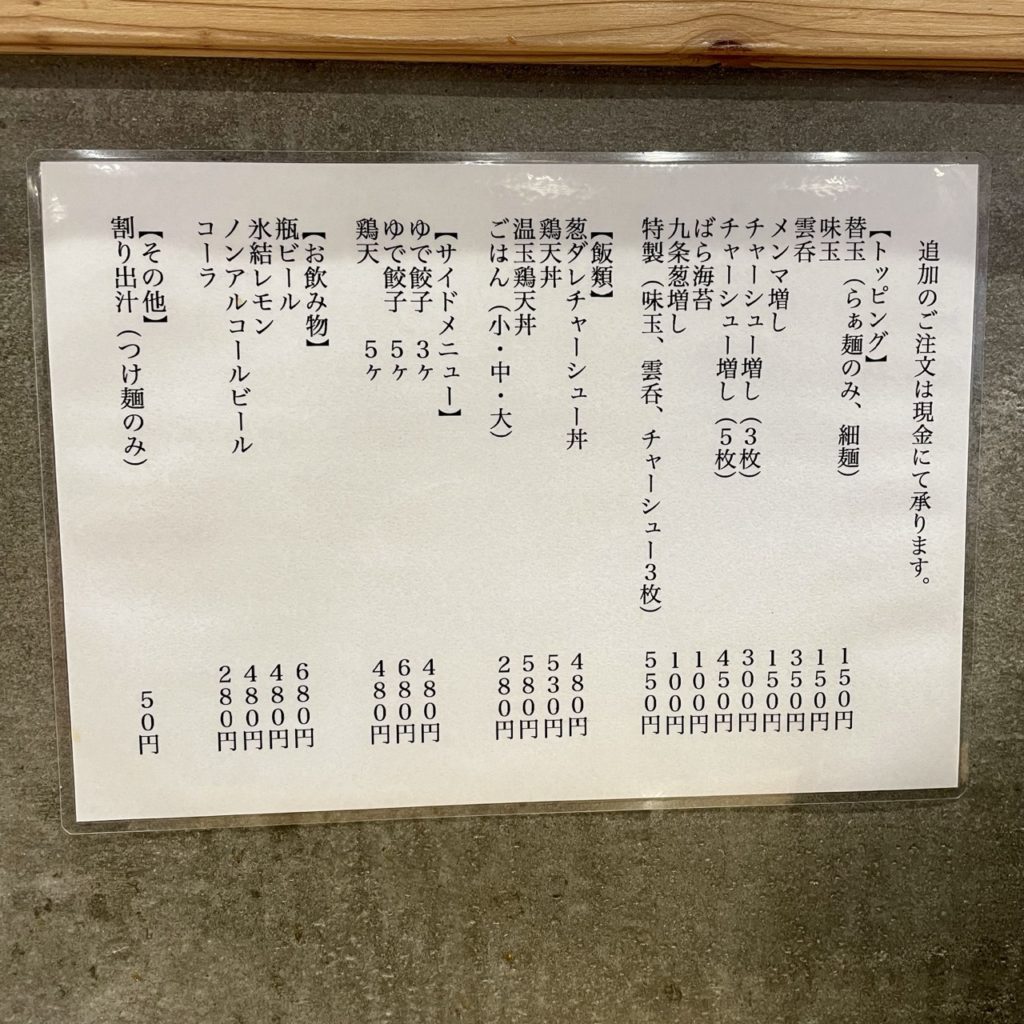 追加のご注文は現金にて承ります。
【トッピング】
替玉（らぁ麺のみ、細麺） 150円
味玉 150円
雲呑 350円
メンマ増し 150円
チャーシュー増し（3枚） 300円
チャーシュー増し（5枚） 450円
ばら海苔 100円
九条葱増し 100円
特製（味玉、雲呑、チャーシュー3枚） 550円
【飯類】
葱ダレチャーシュー丼 480円
鶏天丼 530円
温玉鶏天丼 580円
ごはん（小・中・大） 280円
【サイドメニュー】
ゆで餃子 3ヶ 480円
ゆで餃子 5ヶ 680円
鶏天 5ヶ 480円
【お飲み物】
瓶ビール 680円
氷結レモン 480円
ノンアルコールビール 480円
コーラ 280円
【その他】
割り出汁（つけ麺のみ） 50円